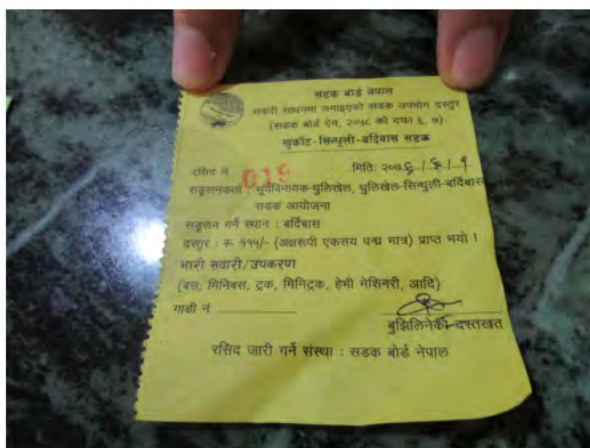 सडक बोर्ड नेपाल
सवारी साधनमा लगाइएको सडक उपभोग दस्तुर
(सडक बोर्ड ऐन, २०५८ को दफा ६, ७)
खुर्कोट-सिन्धुली-बर्दिबास सडक
रसिद नं 019 मिति: २०७६/६/१
सङ्कलनकर्ता : सूर्यविनायक-धुलिखेल, धुलिखेल-सिन्धुली-बर्दिबास
सडक आयोजना
सङ्कलन गर्ने स्थान : बर्दिबास
दस्तुर : रू ११५/- (अक्षरूपी एकसय पन्ध्र मात्र) प्राप्त भयो ।
भारी सवारी/उपकरण
(बस, मिनिबस, ट्रक, मिनिट्रक, हेभी मेशिनरी, आदि)
गाडी नं
बुझिलिनेको दस्तखत
रसिद जारी गर्ने संस्था : सडक बोर्ड नेपाल